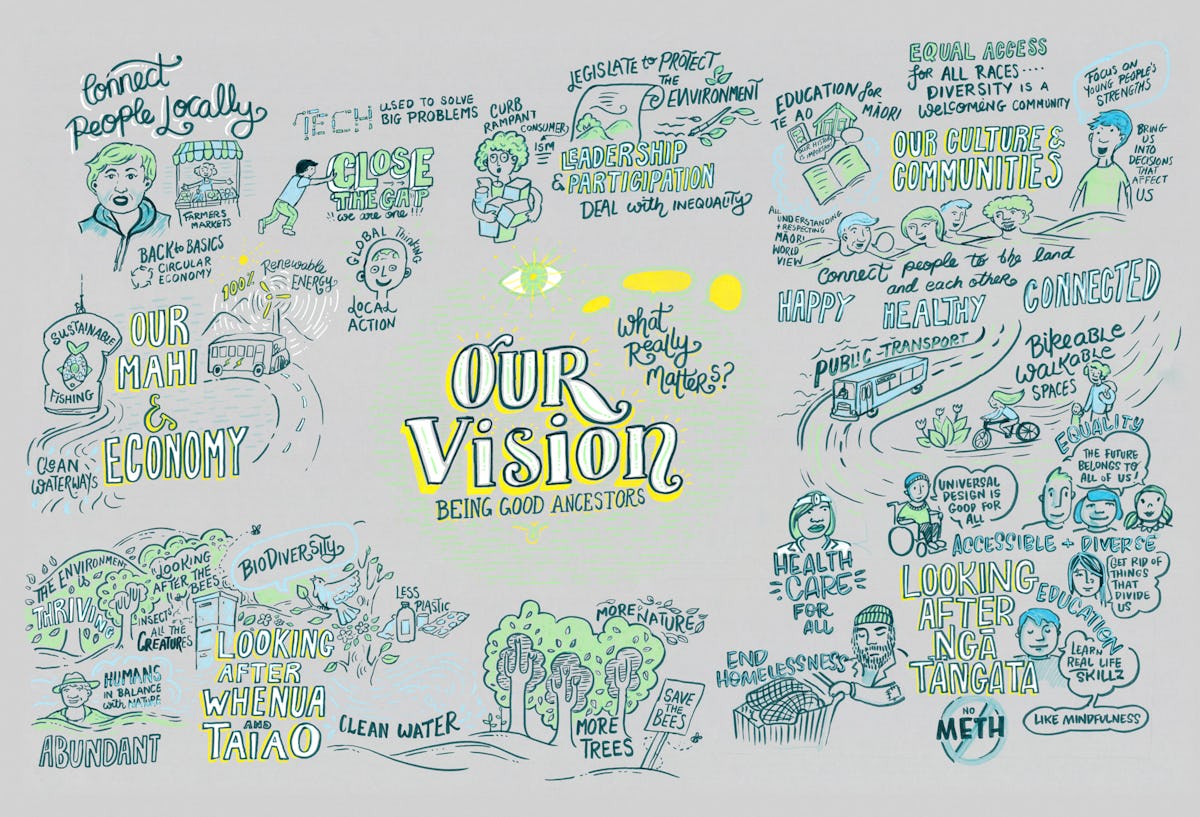 Connect
People Locally
FARMERS
MARKETS
TECH
USED TO SOLVE
BIG PROBLEMS
CLOSE
THE GAP
we are one!!!
CURB
RAMPANT
CONSUMER
ISM
LEGISLATE to PROTECT
THE
ENVIRONMENT
LEADERSHIP
& PARTICIPATION
DEAL with INEQUALITY
EDUCATION for
TE AO MĀORI
OUR HISTORY
IS IMPORTANT
EQUAL ACCESS
for ALL RACES....
DIVERSITY IS A
WELCOMING COMMUNITY
FOCUS ON
YOUNG PEOPLE'S
STRENGTHS
OUR CULTURE &
COMMUNITIES
BRING
US
INTO
DECISIONS
THAT
AFFECT
US
ALL
UNDERSTANDING
+ RESPECTING
MĀORI
WORLD
VIEW
Connect people to the land
and each other
HAPPY HEALTHY CONNECTED
BACK to BASICS
CIRCULAR
ECONOMY
100% Renewable
ENERGY
GLOBAL Thinking
LOCAL
ACTION
SUSTAINABLE
FISHING
OUR
MAHI
&
ECONOMY
CLEAN
WATERWAYS
What
Really
Matters?
OUR
Vision
BEING GOOD ANCESTORS
PUBLIC TRANSPORT
BIKEABLE
WALKABLE
SPACES
EQUALITY
THE FUTURE
BELONGS TO
ALL OF US!
UNIVERSAL
DESIGN IS
GOOD FOR
ALL
ACCESSIBLE + DIVERSE
HEALTH
CARE
FOR
ALL
LOOKING
AFTER
NGA
TANGATA
GET RID OF
THINGS
THAT
DIVIDE
US
EDUCATION
LEARN
REAL LIFE
SKILLZ
LIKE MINDFULNESS
NO
METH
END
HOMELESSNESS
THE ENVIRONMENT
IS
THRIVING
LOOKING
AFTER THE
BEES
INSECTS
ALL THE
CREATURES
BIODIVERSITY
LESS
PLASTIC
HUMANS
IN BALANCE
with NATURE
ABUNDANT
LOOKING
AFTER
WHENUA
AND
TAIAO
CLEAN WATER
MORE NATURE
MORE
TREES
SAVE
THE
BEES